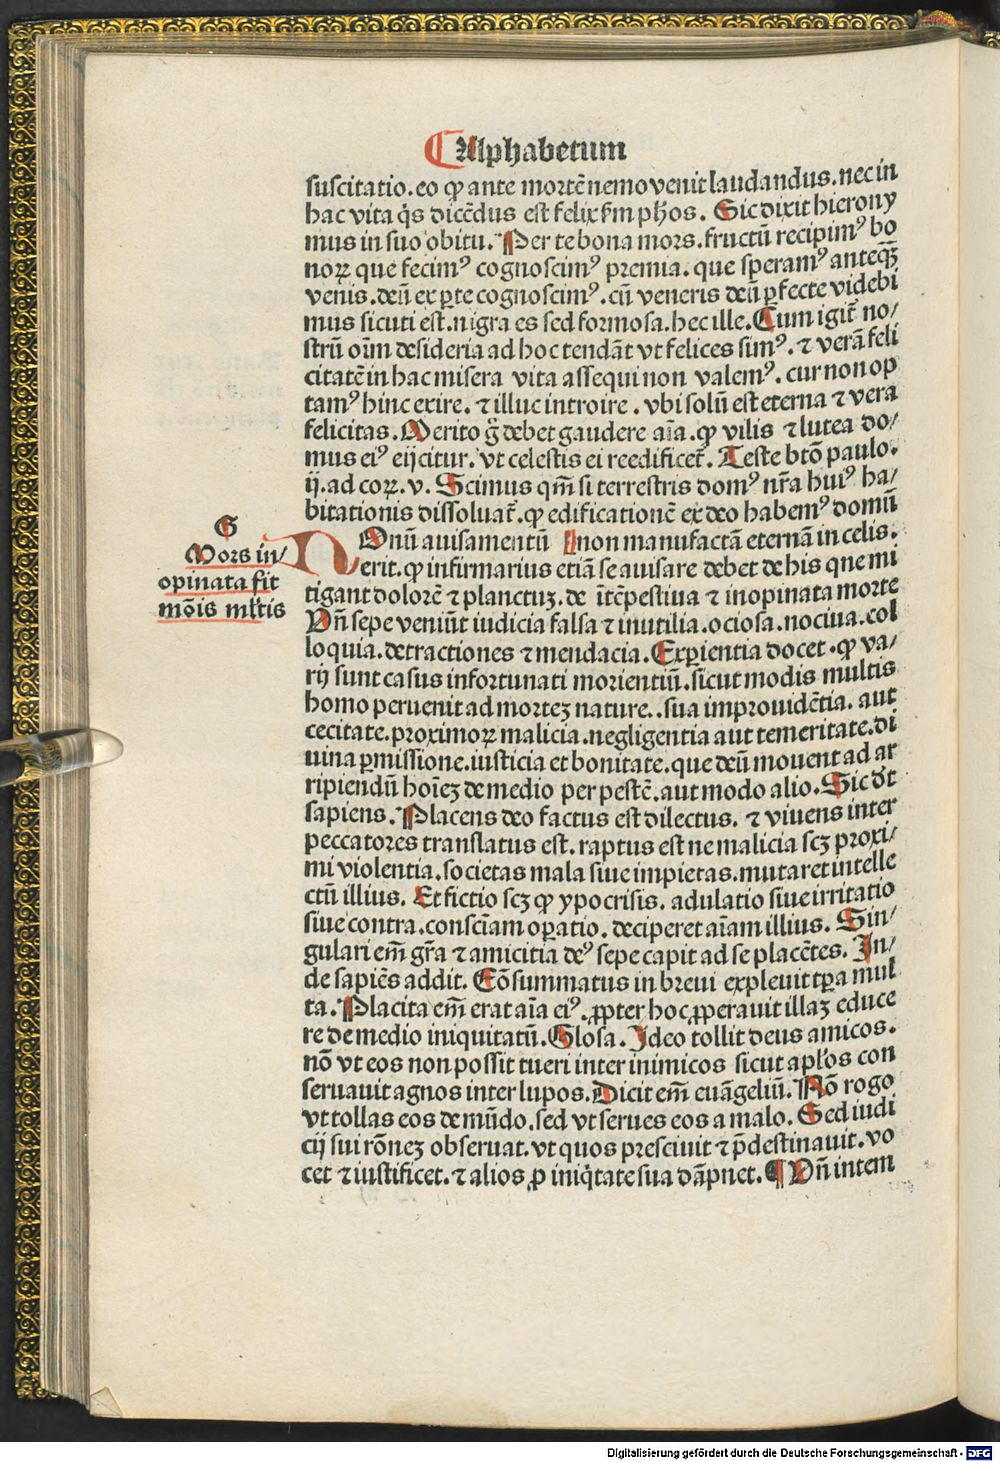 Alphabetum
suscitatio.eo ꝙ ante mortē nemo venit laudandus.nec in
hac vita q̇s dicēdus est felix ẜm ph̄os. Sic dixit hierony
mus in suo obitu. Per te bona mors.fructū recipimꝰ bo
noꝝ que fecimꝰ cognoscimꝰ premia.que speramꝰ anteqꝫ̄
venis.deū ex ꝑte cognoscimꝰ.cū veneris deū ꝑfecte videbi
mus sicuti est.nigra es sed formosa.hec ille.Cum igit̄ no/
strū oīm desideria ad hoc tendāt vt felices simꝰ.⁊ verā feli
citatē in hac misera vita assequi non valemꝰ.cur non op
tamꝰ hinc exire.⁊ illuc introire.vbi solū est eterna ⁊ vera
felicitas.Merito g̊ debet gaudere aīa.ꝙ vilis ⁊ lutea do/
mus eiꝰ eijcitur.vt celestis ei reedificet̄.Teste btō paulo.
ij.ad coꝝ.v. Scimus qm̄ si terrestris domꝰ nr̄a huiꝰ ha/
bitationis dissoluat̄.ꝙ edificationē ex deo habemꝰ domū
G
Mors in/
opinata fit
mōis ml̄tis
NOnū auisamentū non manufactā eternā in celis.
erit.ꝙ infirmarius etiā se auisare debet de his que mi
tigant dolorē ⁊ planctuꝫ.de ītēpestiua ⁊ inopinata morte
Vn̄ sepe veniūt iudicia falsa ⁊ inutilia.ociosa.nociua.col
loquia.detractiones ⁊ mendacia.Experientia docet.ꝙ va/
rij sunt casus infortunati morientiū.sicut modis multis
homo peruenit ad morteꝫ nature..sua improuidētia.aut
cecitate.proximoꝝ malicia.negligentia aut temeritate.di
uina ꝑmissione.iusticia et bonitate.que deū mouent ad ar
ripiendū hoīeꝫ de medio per pestē.aut modo alio.Sic dt̄
sapiens.Placens deo factus est dilectus. ⁊ viuens inter
peccatores translatus est.raptus est ne malicia scꝫ proxi/
mi violentia.societas mala siue impietas.mutaret intelle
ctū illius. Et fictio scꝫ ꝙ ypocrisis. adulatio siue irritatio
siue contra.consciām oꝑatio. deciperet aīam illius. Sin/
gulari em̄ gr̄a ⁊ amicitia deꝰ sepe capit ad se placētes. In/
de sapiēs addit. Cōsummatus in breui expleuit tꝑa mul
ta.Placita em̄ erat aīa eiꝰ.ꝓpter hoc ꝓperauit illaꝫ educe
re de medio iniquitatū.Glosa.Ideo tollit deus amicos.
nō vt eos non possit tueri inter inimicos sicut apl̄os con
seruauit agnos inter lupos.Dicit em̄ euāgeliū.Nō rogo
vt tollas eos de mūdo.sed vt serues eos a malo.Sed iudi
cij sui rōneꝫ obseruat.vt quos presciuit ⁊ p̄destinauit.vo
cet ⁊ iustificet.⁊ alios ꝓ iniq̇tate sua dāpnet.¶ Vn̄ intem
Digitalisierung gefördert durch die Deutsche Forschungsgemeinschaft - DFG